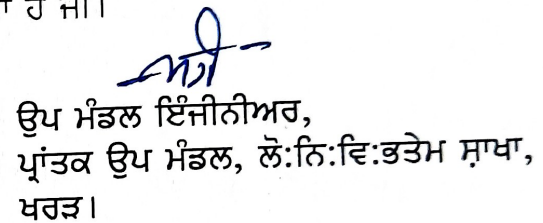 ਹੈ ਜੀ।
ਉਪ ਮੰਡਲ ਇੰਜੀਨੀਅਰ,
ਪ੍ਰਾਂਤਕ ਉਪ ਮੰਡਲ, ਲੋ:ਨਿ:ਵਿ:ਭਤੇਮ ਸ਼ਾਖਾ,
ਖਰੜ।